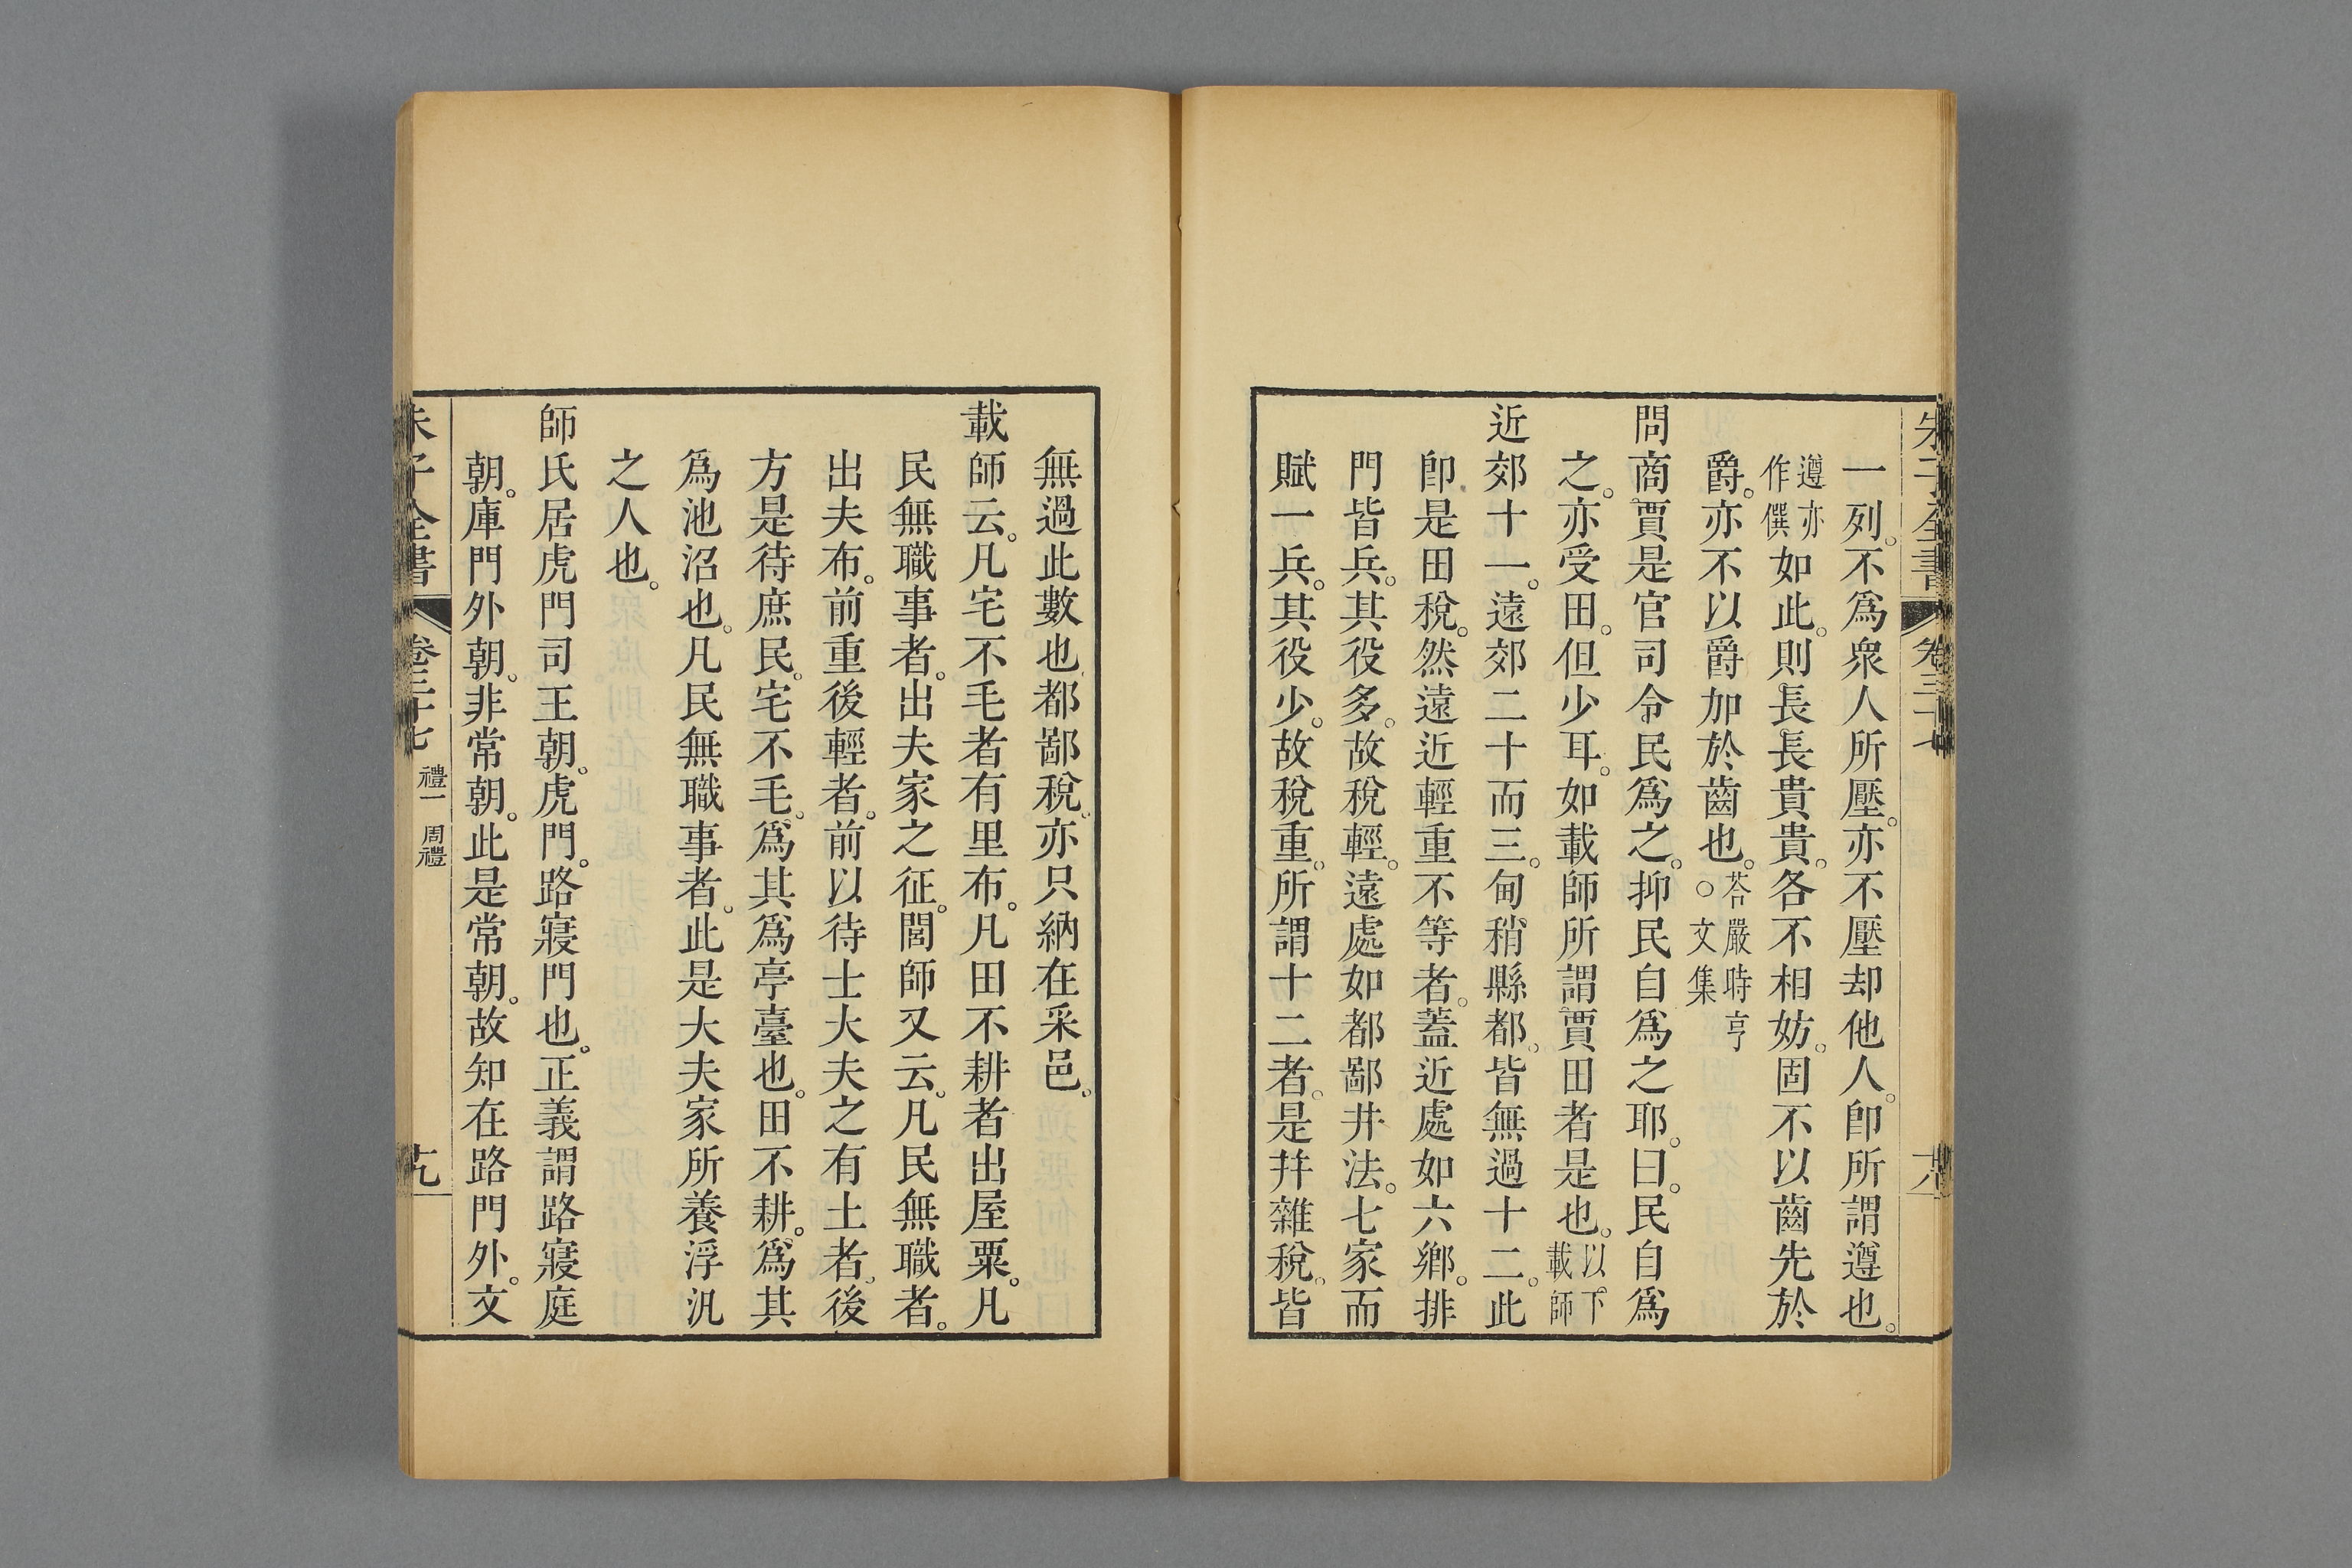 朱子全書 卷三十七 十八
一列。不爲衆人所壓。亦不壓却他人。卽所謂遵也。
遵亦作僎如此。則長長貴貴。各不相妨。固不以齒先於
爵。亦不以爵加於齒也。荅嚴時亨○文集
問商賈是官司令民爲之。抑民自爲之耶。曰。民自爲
之。亦受田。但少耳。如載師所謂賈田者是也。以下載師
近郊十一。遠郊二十而三。甸稍縣都。皆無過十二。此
卽是田稅。然遠近輕重不等者。蓋近處如六鄉。排
門皆兵。其役多。故稅輕。遠處如都鄙井法。七家而
賦一兵。其役少。故稅重。所謂十二者。是幷雜稅。皆
無過此數也。都鄙稅。亦只納在采邑。
載師云。凡宅不毛者有里布。凡田不耕者出屋粟。凡
民無職事者。出夫家之征。閭師又云。凡民無職者。
出夫布。前重後輕者。前以待士大夫之有土者。後
方是待庶民。宅不毛。爲其爲亭臺也。田不耕。爲其
爲池沼也。凡民無職事者。此是大夫家所養浮汎
之人也。
師氏居虎門司王朝。虎門。路寢門也。正義謂路寢庭
朝。庫門外朝。非常朝。此是常朝。故知在路門外。文
朱子全書 卷三十七 禮一 周禮 十九